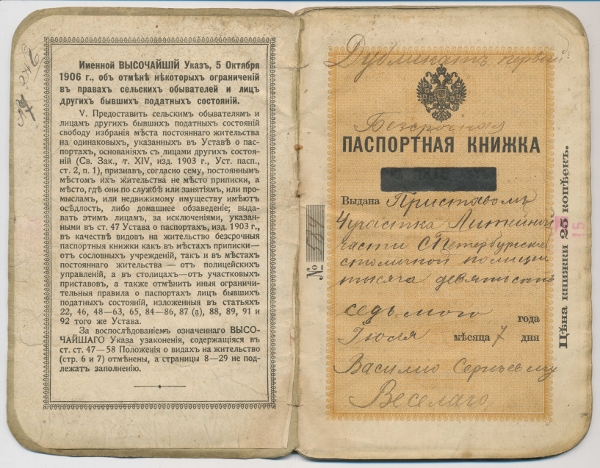 Именной ВЫСОЧАЙШІЙ Указъ, 5 Октября
1906 г., объ отмѣнѣ нѣкоторыхъ ограниченій
въ правахъ сельскихъ обывателей и лицъ
другихъ бывшихъ податныхъ состояній.
V. Предоставить сельскимъ обывателямъ и
лицамъ другихъ бывшихъ податныхъ состояній
свободу избранія мѣста постояннаго жительства
на одинаковыхъ, указанныхъ въ Уставѣ о паспор-
тахъ, основаніяхъ съ лицами другихъ состоя-
ній (Св. Зак., т. XIV, изд. 1903 г., Уст. пасп.,
ст. 2, п. 1), признавъ, согласно сему, постояннымъ
мѣстомъ ихъ жительства не мѣсто приписки, а
мѣсто, гдѣ они по службѣ или занятіямъ, или про-
мысламъ, или недвижимому имуществу имѣютъ
осѣдлость, либо домашнее обзаведеніе; выда-
вать этимъ лицамъ, за исключеніями, указан-
ными въ ст. 47 Устава о паспортахъ, изд. 1903 г.,
въ качествѣ видовъ на жительство безсрочныя
паспортныя книжки какъ въ мѣстахъ приписки—
отъ сословныхъ учрежденій, такъ и въ мѣстахъ
постояннаго жительства — отъ полицейскихъ
управленій, а въ столицахъ—отъ участковыхъ
приставовъ, а также отмѣнить иныя ограничи-
тельныя правила о паспортахъ лицъ бывшихъ
податныхъ состояній, изложенныя въ статьяхъ
22, 46, 48—63, 65, 84—86, 87 (а), 88, 89, 91 и
92 того же Устава.
За воспослѣдованіемъ означеннаго ВЫСО-
ЧАЙШАГО Указа узаконенія, содержащіяся въ
ст. ст. 47—58 Положенія о видахъ на жительство
(стр. 6 и 7) отмѣнены, а страницы 8—29 не под-
лежатъ заполненію.
Дубликатъ первый
Безсрочная
ПАСПОРТНАЯ КНИЖКА
Выдана Приставомъ
участка Литейной
части СПетербургской
столичной полиціи
тысяча девятьсотъ
седьмого года
Іюля мѣсяца 7 дня
Василію Сергѣеву
Веселаго
№
Цѣна книжки 25 копѣекъ.